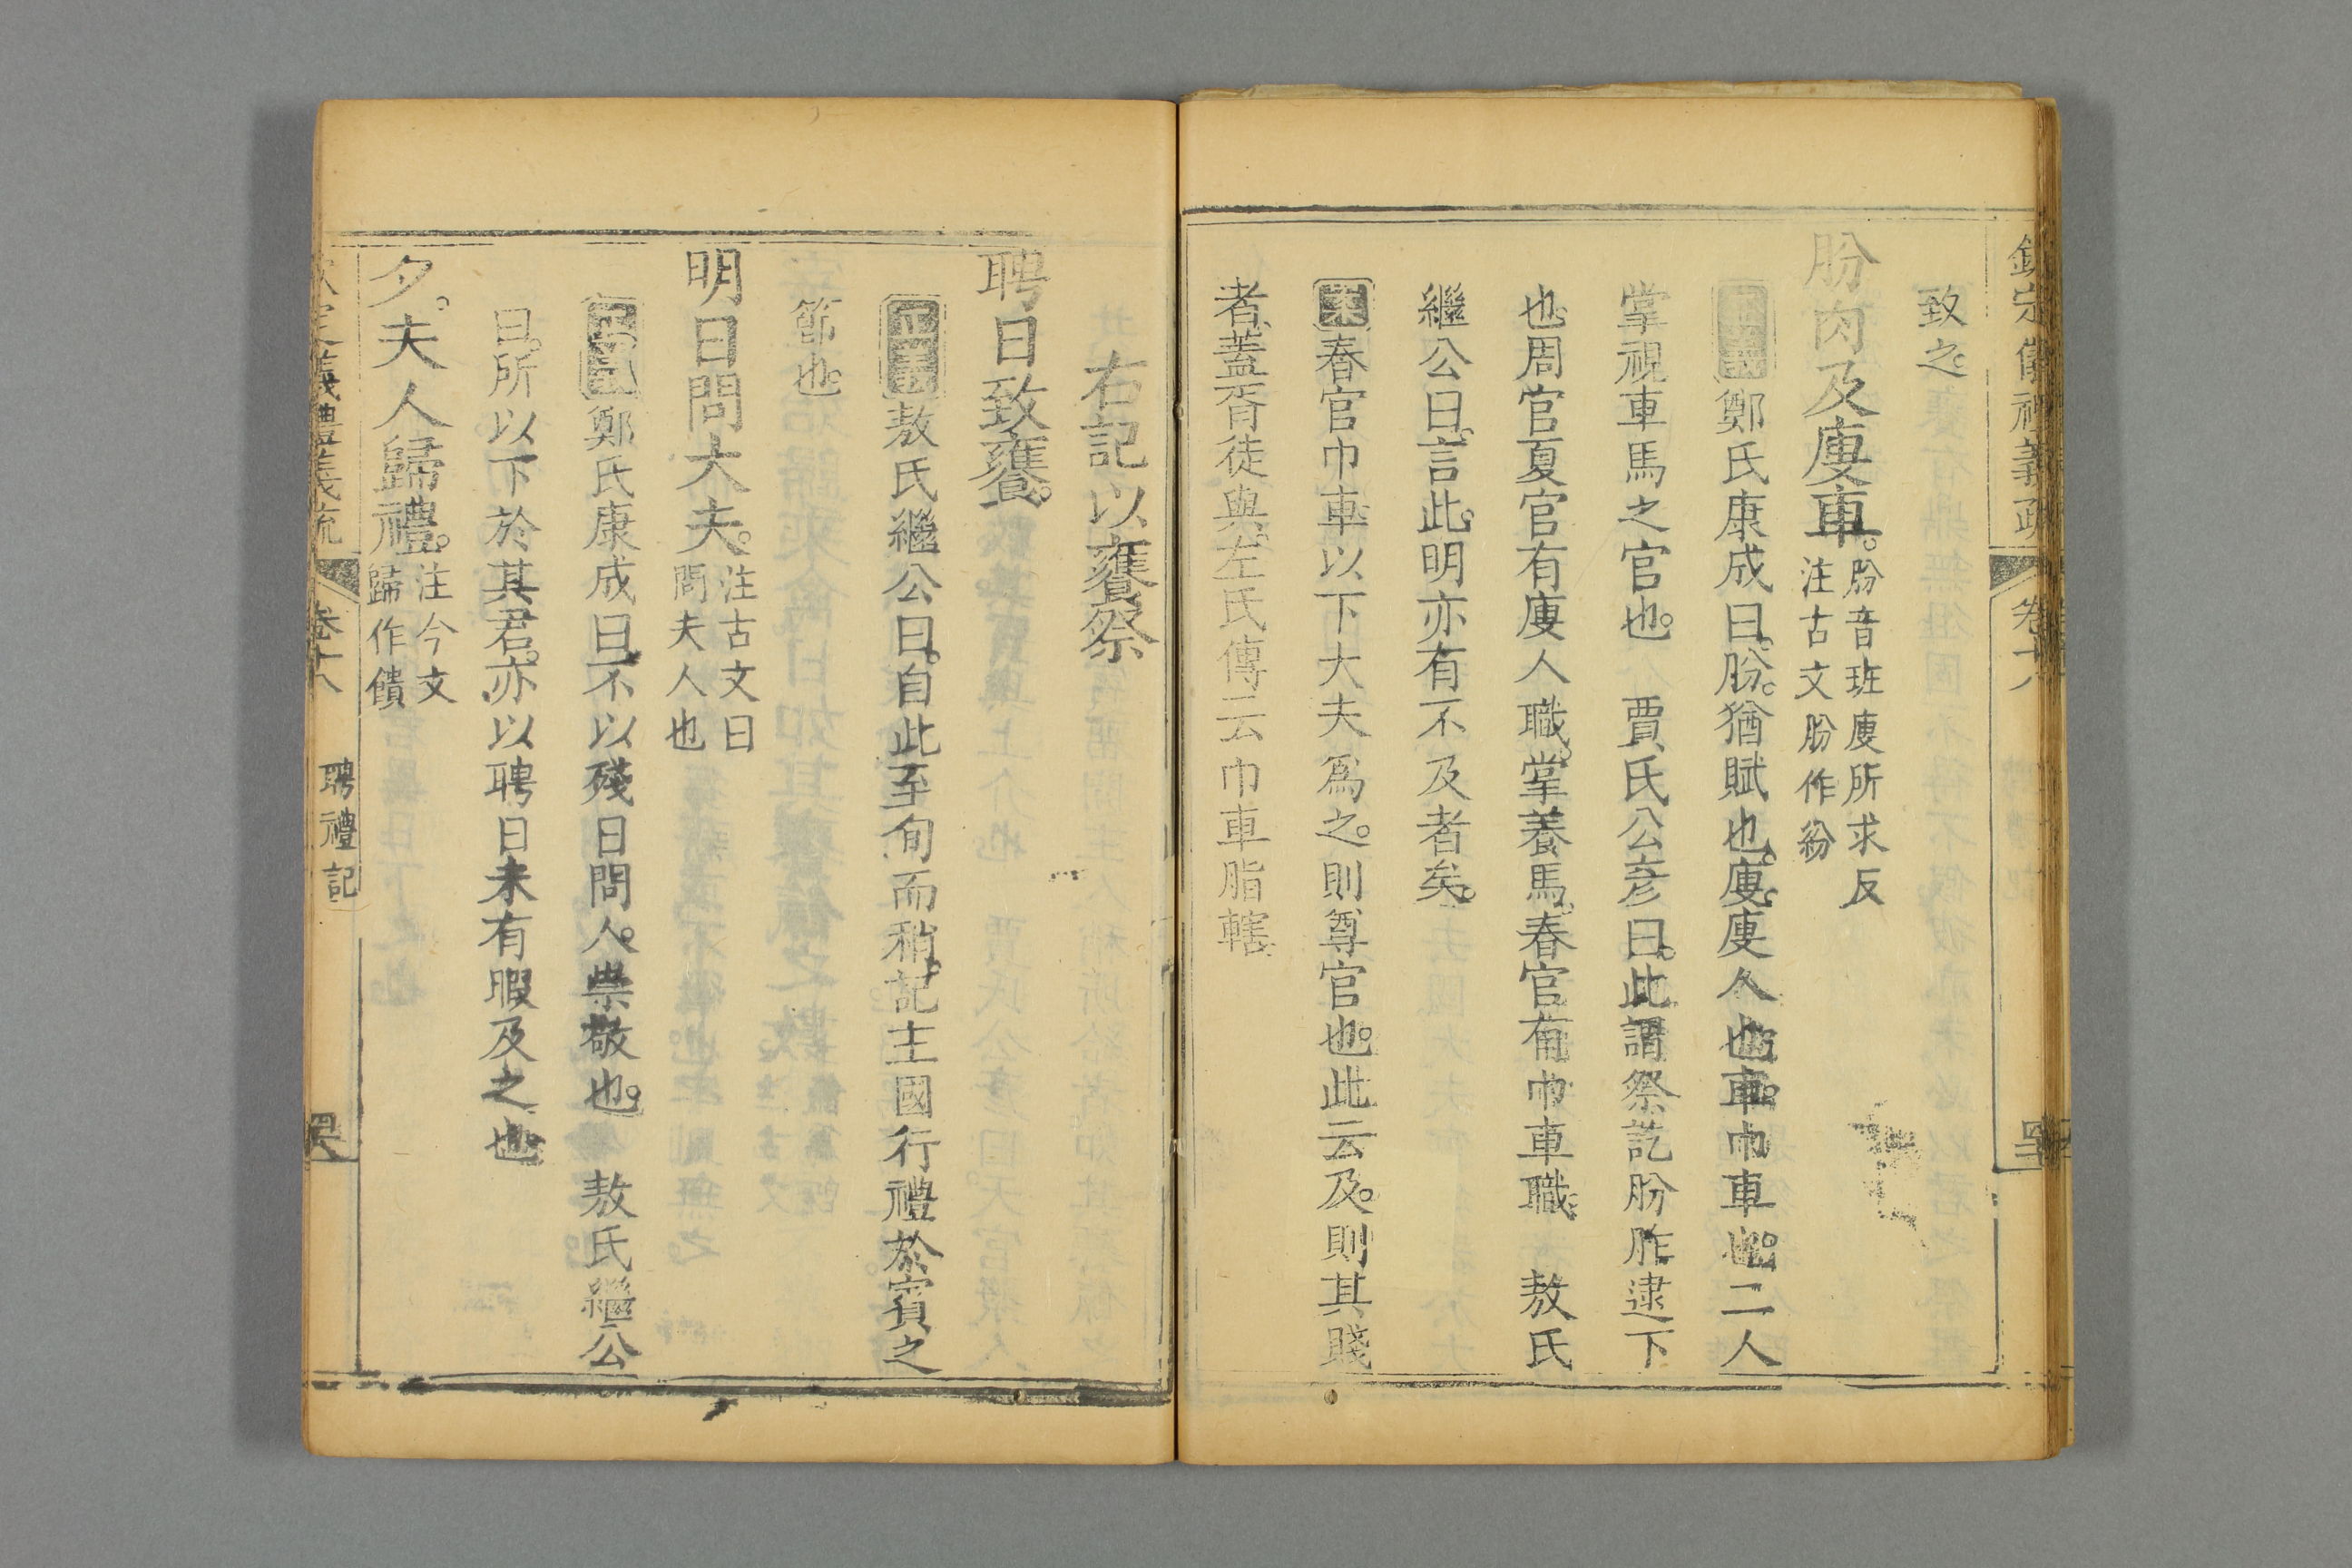 欽定儀禮義疏 卷十八
致之
肦肉及廋車 肦音班廋所求反
注古文肦作紛
正義 鄭氏康成曰肦猶賦也廋廋人也車巾車也二人
掌視車馬之官也 賈氏公彥曰此謂祭訖肦胙逮下
也周官夏官有廋人職掌養馬春官有巾車職 敖氏
繼公曰言此明亦有不及者矣
案 春官巾車以下大夫爲之則尊官也此云及則其賤
者蓋胥徒與左氏傳云巾車脂轄
右記以饔祭
聘日致饔
正義 敖氏繼公曰自此至旬而稍記主國行禮於賓之
節也
明日問大夫 注古文曰
問夫人也
正義 鄭氏康成曰不以殘日問人崇敬也 敖氏繼公
曰所以下於其君亦以聘日未有暇及之也
夕夫人歸禮 注今文
歸作饋
欽定儀禮義疏 卷十八 聘禮記